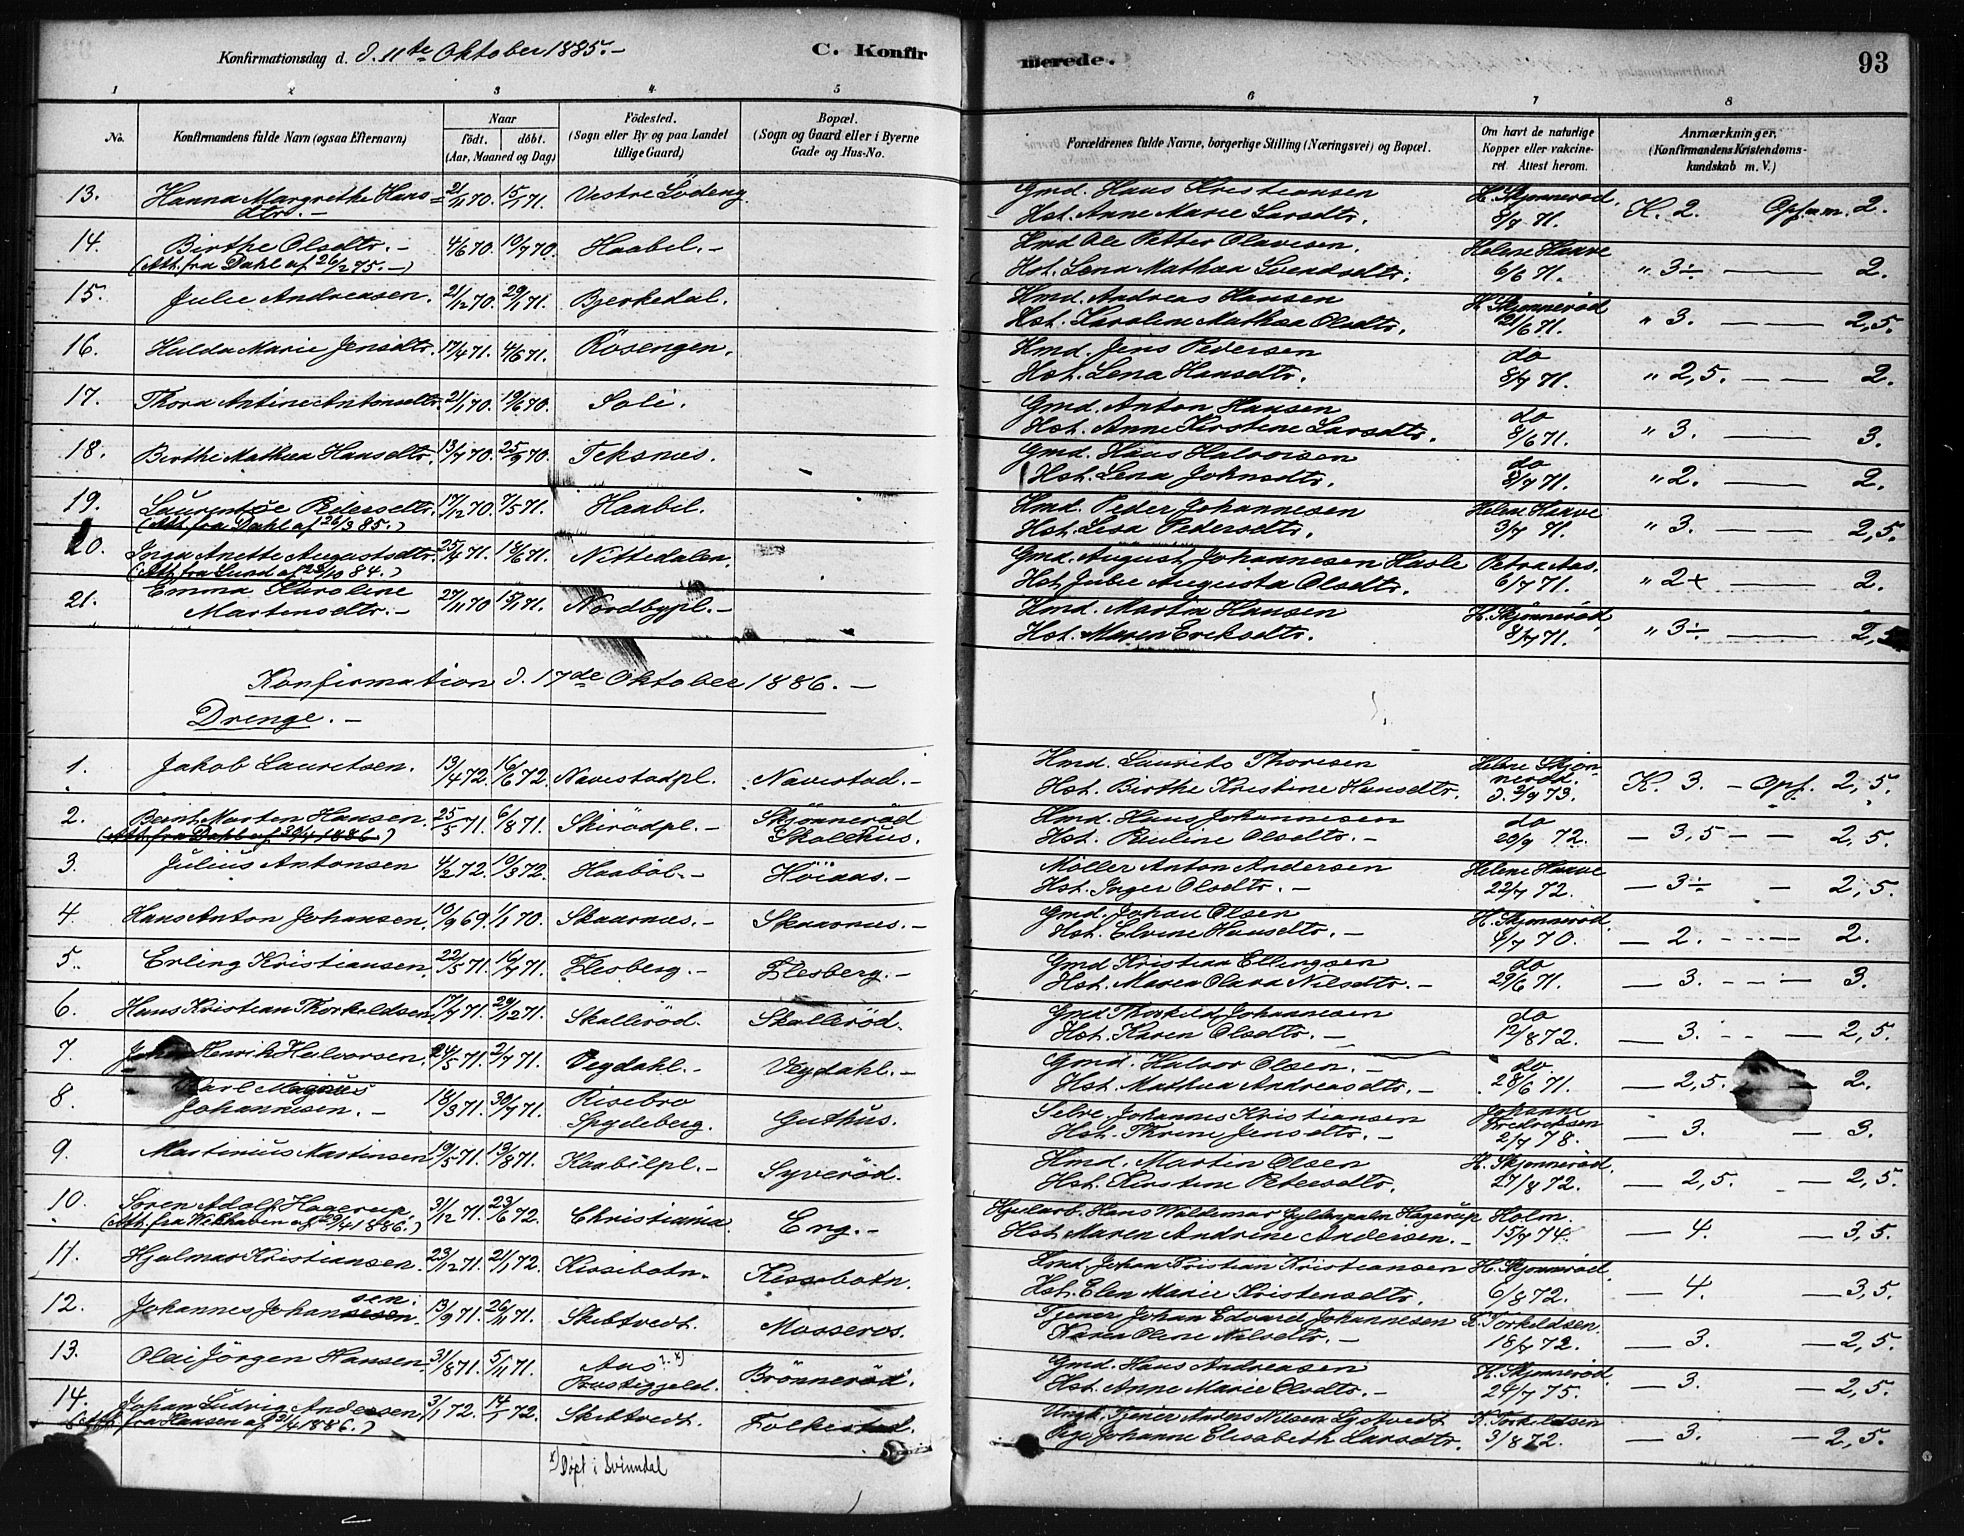 Konfirmationsdag d. d. 11te Oktober 1885.-
C. Konfir
merede.
93
1 2 3 4 5 6 7 8
No.
Konfirmandens fulde Navn (ogsaa Efternavn)
Naar
födt. döbt.
(Aar, Maaned og Dag)
Födested.
(Sogn eller By og paa Landet
tillige Gaard)
Bopæl.
(Sogn og Gaard eller i Byerne
Gade og Hus-No.
Forældrenes fulde Navne, borgerlige Stilling (Næringsvei) og Bopæl.
Om havt de naturlige
Kopper eller vakcine-
ret. Attest herom.
Anmærkninger,
(Konfirmandens Kristendoms-
kundskab m. V.)
13. Hanna Margrethe Hans= 21/11 70. 15/1 71. Vestre Lödeng. Gmd. Hans Kristiansen H. Skjönneröd.
dtr.- Hst. Anne Marie Larsdtr. 8/7 71. K. 2. Opf.m. 2.
14. Birthe Olsdtr.- 4/6 70. 10/7 70. Haabil.- Hmd Ole Petter Olavesen. Helene Haave
(Att. fra Dahl af 26/2 75.-) Hst. Lena Mathea Svendsdtr. 6/6 71. " 3÷ — 2.
15. Julie Andreasen. 21/12 70. 29/1 71. Bjerkedal. Hmd. Andreas Hansen H. Skjönneröd
Hst. Karoline Mathea Olsdtr. 21/6 71. " 3. — 2,5.
16. Hulda Marie Jensdtr. 17/4 71. 4/6 71. Rösengen. Hmd. Jens Pedersen do
Hst. Lena Hansdtr. 8/7 71. " 2,5. — 2.
17. Thora Antine Antonsdtr. 21/1 70. 19/6 70. Soli. Gmd. Anton Hansen do
Hst. Anne Kirstine Larsdtr. 8/6 71. " 3. — 3.
18. Birthe Mathea Hansdtr. 13/7 70. 25/9 70. Teksnes. Gmd. Hans Halvorsen do
Hst. Lena Johnsdtr. 8/7 71. " 2. — 2.
19. Laurentse Pedersdtr. 17/12 70. 7/5 71. Haabil. Hmd. Peder Johannesen Helene Haave
(Att. fra Dahl af 26/3 85.) Hst. Lisa Pedersdtr. 3/7 71. " 3. — 2,5.
20. Inga Anette Augustsdtr. 25/4 71. 18/6 71. Nittedalen. Gmd. August Johannesen Hasle Petra Aas.
(Att. fra Lund af 23/10 84.) Hst. Julie Augusta Olsdtr. 6/7 71. " 2+ — 2.
21. Emma Karoline
Martensdtr.- 27/11 70 15/1 71. Nordbypl.- Hmd. Martin Hansen H. Skjönneröd
Hst. Maren Eriksdtr. 8/7 71. " 3÷ — 2,5
Konfirmation d. 17de Oktober 1886.-
Drenge.-
1. Jakob Lauritsen. 13/4 72. 16/6 72. Navestadpl. Navestad.- Hmd. Laurits Thoresen Helene Skjön-
neröd.
Hst. Birthe Kristine Hansdtr. d. 2/9 73. K. 3. - Opf. 2,5.
2. Bernt Marten Hansen. 25/5 71. 6/8 71. Skirödpl.- Skjönneröd Hmd. Hans Johannesen do
(Att. fra Dahl af 30/4 1886) Skolehus. Hst. Pauline Olsdtr.- 20/9 72. - 3,5 - - 2,5.
3. Julius Antonsen 4/2 72. 10/3 72. Haaböl.- Höiaas.- Möller Anton Andersen Helene Haave
Hst. Inger Olsdtr.- 22/7 72. - 3÷ - 2,5.
4. Hans Anton Johansen. 19/9 69. 1/1 70. Skaarnes.- Skaarnes.- Gmd. Johan Olsen H. Skjönneröd.
Hst. Elvine Hansdtr.- 4/7 70. - 2. - - - 2.
5. Erling Kristiansen. 22/5 71. 16/7 71. Flesberg.- Flesberg.- Gmd Kristian Ellingsen do
Hst. Maren Olava Nilsdtr.- 29/6 71. - 3. - - - 3.
6. Hans Kristian Thorkeldsen. 17/7 71. 29/12 71. Skalleröd. Skalleröd. Gmd Thorkild Johannesen do
Hst. Karen Olsdtr.- 12/8 72. - 3. - - 2,5.
7. Johan Henrik Halvorsen. 24/5 71. 2/7 71. Vegdahl.- Vegdahl.- Gmd. Halvor Olsen.- do.
Hst. Mathea Andreasdtr.- 28/6 71. - 2,5. 2.
8. Karl Magnus
Johannesen.- 18/3 71. 30/7 71. Risebro Guthus. Selve. Johannes Kristiansen Johanne
Spydeberg. Hst. Thrine Jensdtr.- Fredriksen
2/7 78. - 3. - 3.
9. Martinius Martinsen 19/5 71. 13/8 71. Haabölpl.- Syveröd. Hmd. Martin Olsen H. Skjönneröd.
Hst. Kirstine Petersdtr. 27/8 72. - 2,5. - 2,5.
10. Sören Adolf Hagerup. 31/12 71. 23/6 72. Christiania. Eng.- Hjularb. Hans Waldemar Gyldenpalm Hagerup Holm.
(Att. fra af 29/4 1886.) Hst. Maren Andrine Andersen.- 15/7 74. - 4. - 3,5.
11. Hjalmar Kristiansen. 23/12 71. 21/1 72. Kissibotn. Kissebotn. Hmd. Johan Kristian Kristiansen H. Skjönneröd.
Hst. Elen Marie Kristensdtr. 6/8 72. - 4. - 3,5.
12. Johannes Johansen. 13/9 71. 26/11 71. Skibtvedt. Mosseros. Tjener Johan Edvard Johannesen K. Torkildsen.
Karen Oline Nilsdtr.- 18/7 72. - 3. - 2,5.
13. Olai Jörgen Hansen. 31/8 71. 5/11 71. Aas ?.x) Brönneröd. Gmd. Hans Andreasen H. Skjönneröd.
Præstegjeld. Hst. Anne Marie Olsdtr.- 24/7 75. - 3. - 2,5.
14. Johan Ludvig Andersen. 3/1 72. 14/1 72. Skibtvedt. Folkestad. Ungk. Tjener Anders Nilsen Lystvedt K. Torkildsen
(Att. fra Hansen af 21/4 1886.) Pige Johanne Elisabeth Larsdtr. 3/8 72. - 3. - 2,5.
x) Döpt i Svinndal